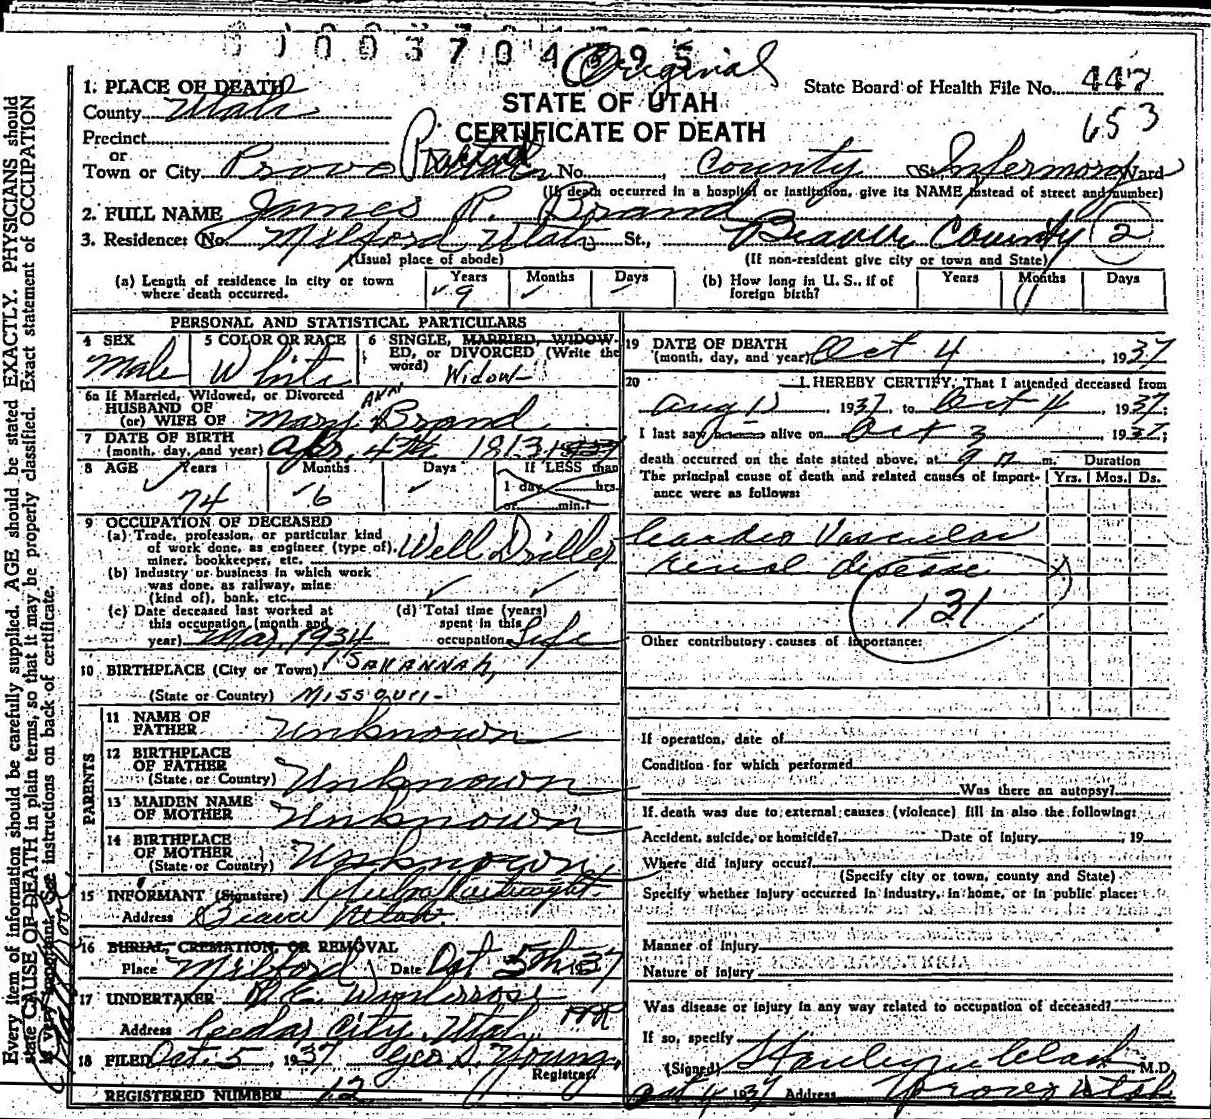 Original
1. PLACE OF DEATH
State Board of Health File No. 447
County Utah
STATE OF UTAH
653
Precinct
CERTIFICATE OF DEATH
or
Town or City Provo No. County St. Ward
(If death occurred in a hospital or institution, give its NAME instead of street and number)
2. FULL NAME James R. Brand
3. Residence: No. Milford Utah St., Beaver County 2
(Usual place of abode) (If non-resident give city or town and State)
(a) Length of residence in city or town where death occurred. Years 9 Months Days (b) How long in U. S., if of foreign birth? Years Months Days
PERSONAL AND STATISTICAL PARTICULARS
4 SEX 5 COLOR OR RACE 6 SINGLE, MARRIED, WIDOWED, or DIVORCED (Write the word)
Male White Widow
6a If Married, Widowed, or Divorced
HUSBAND OF
(or) WIFE OF Mary Ann Brand
7 DATE OF BIRTH
(month, day, and year) Apr. 4th
8 AGE Years Months Days If LESS than
74 6 1 day hrs.
or min.
9 OCCUPATION OF DECEASED
(a) Trade, profession, or particular kind
of work done, as engineer (type of),
miner, bookkeeper, etc. Well Driller
(b) Industry or business in which work
was done, as railway, mine
(kind of), bank, etc.
(c) Date deceased last worked at
this occupation (month and
year) Mar, 1934
(d) Total time (years)
spent in this
occupation Life
10 BIRTHPLACE (City or Town) SAVANNAH,
(State or Country) MISSOURI-
PARENTS
11 NAME OF
FATHER Unknown
12 BIRTHPLACE
OF FATHER
(State or Country) Unknown
13 MAIDEN NAME
OF MOTHER Unknown
14 BIRTHPLACE
OF MOTHER
(State or Country) Unknown
15 INFORMANT (Signature)
Address Utah
16 BURIAL, CREMATION, OR REMOVAL
Place Milford Date Oct 5th 1937
17 UNDERTAKER
Address Cedar City, Utah
18 FILED Oct. 5 1937 Geo. S. Young
Registrar
REGISTERED NUMBER 12
19 DATE OF DEATH
(month, day, and year) Oct 4, 1937
20 I HEREBY CERTIFY, That I attended deceased from
Aug 1937, to Oct 4 1937;
I last saw alive on Oct 3 1937;
death occurred on the date stated above, at 9 m. Duration
The principal cause of death and related causes of importance were as follows: Yrs. Mos. Ds.
Cardio Vascular
renal disease
131
Other contributory causes of importance:
If operation, date of
Condition for which performed
Was there an autopsy?
If death was due to external causes (violence) fill in also the following:
Accident, suicide, or homicide? Date of injury 19
Where did injury occur?
(Specify city or town, county and State)
Specify whether injury occurred in industry, in home, or in public place:
Manner of Injury
Nature of Injury
Was disease or injury in any way related to occupation of deceased?
If so, specify
(Signed) Stanley M.D.
Oct 4 1937 Address Provo Utah
Every item of information should be carefully supplied. AGE should be stated EXACTLY. PHYSICIANS should
state CAUSE OF DEATH in plain terms, so that it may be properly classified. Exact statement of OCCUPATION
is very important. See instructions on back of certificate.